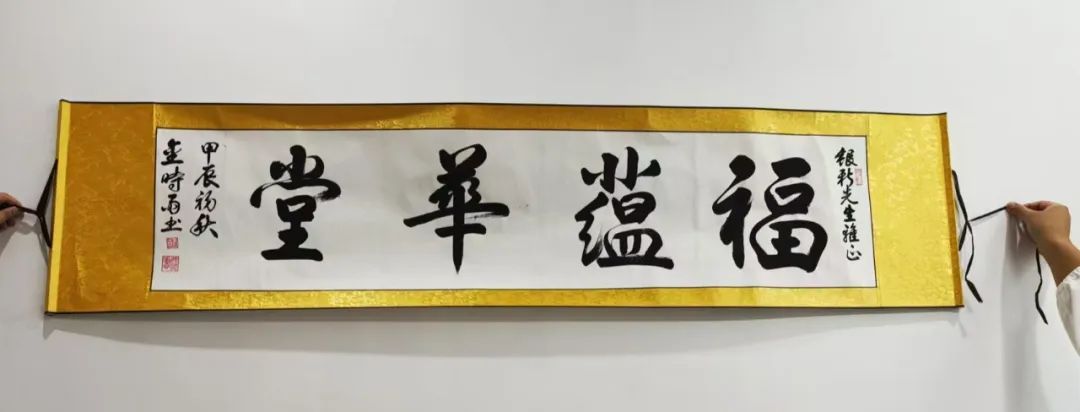 先生雅正
福蘊華堂
甲辰初秋
金時雨书